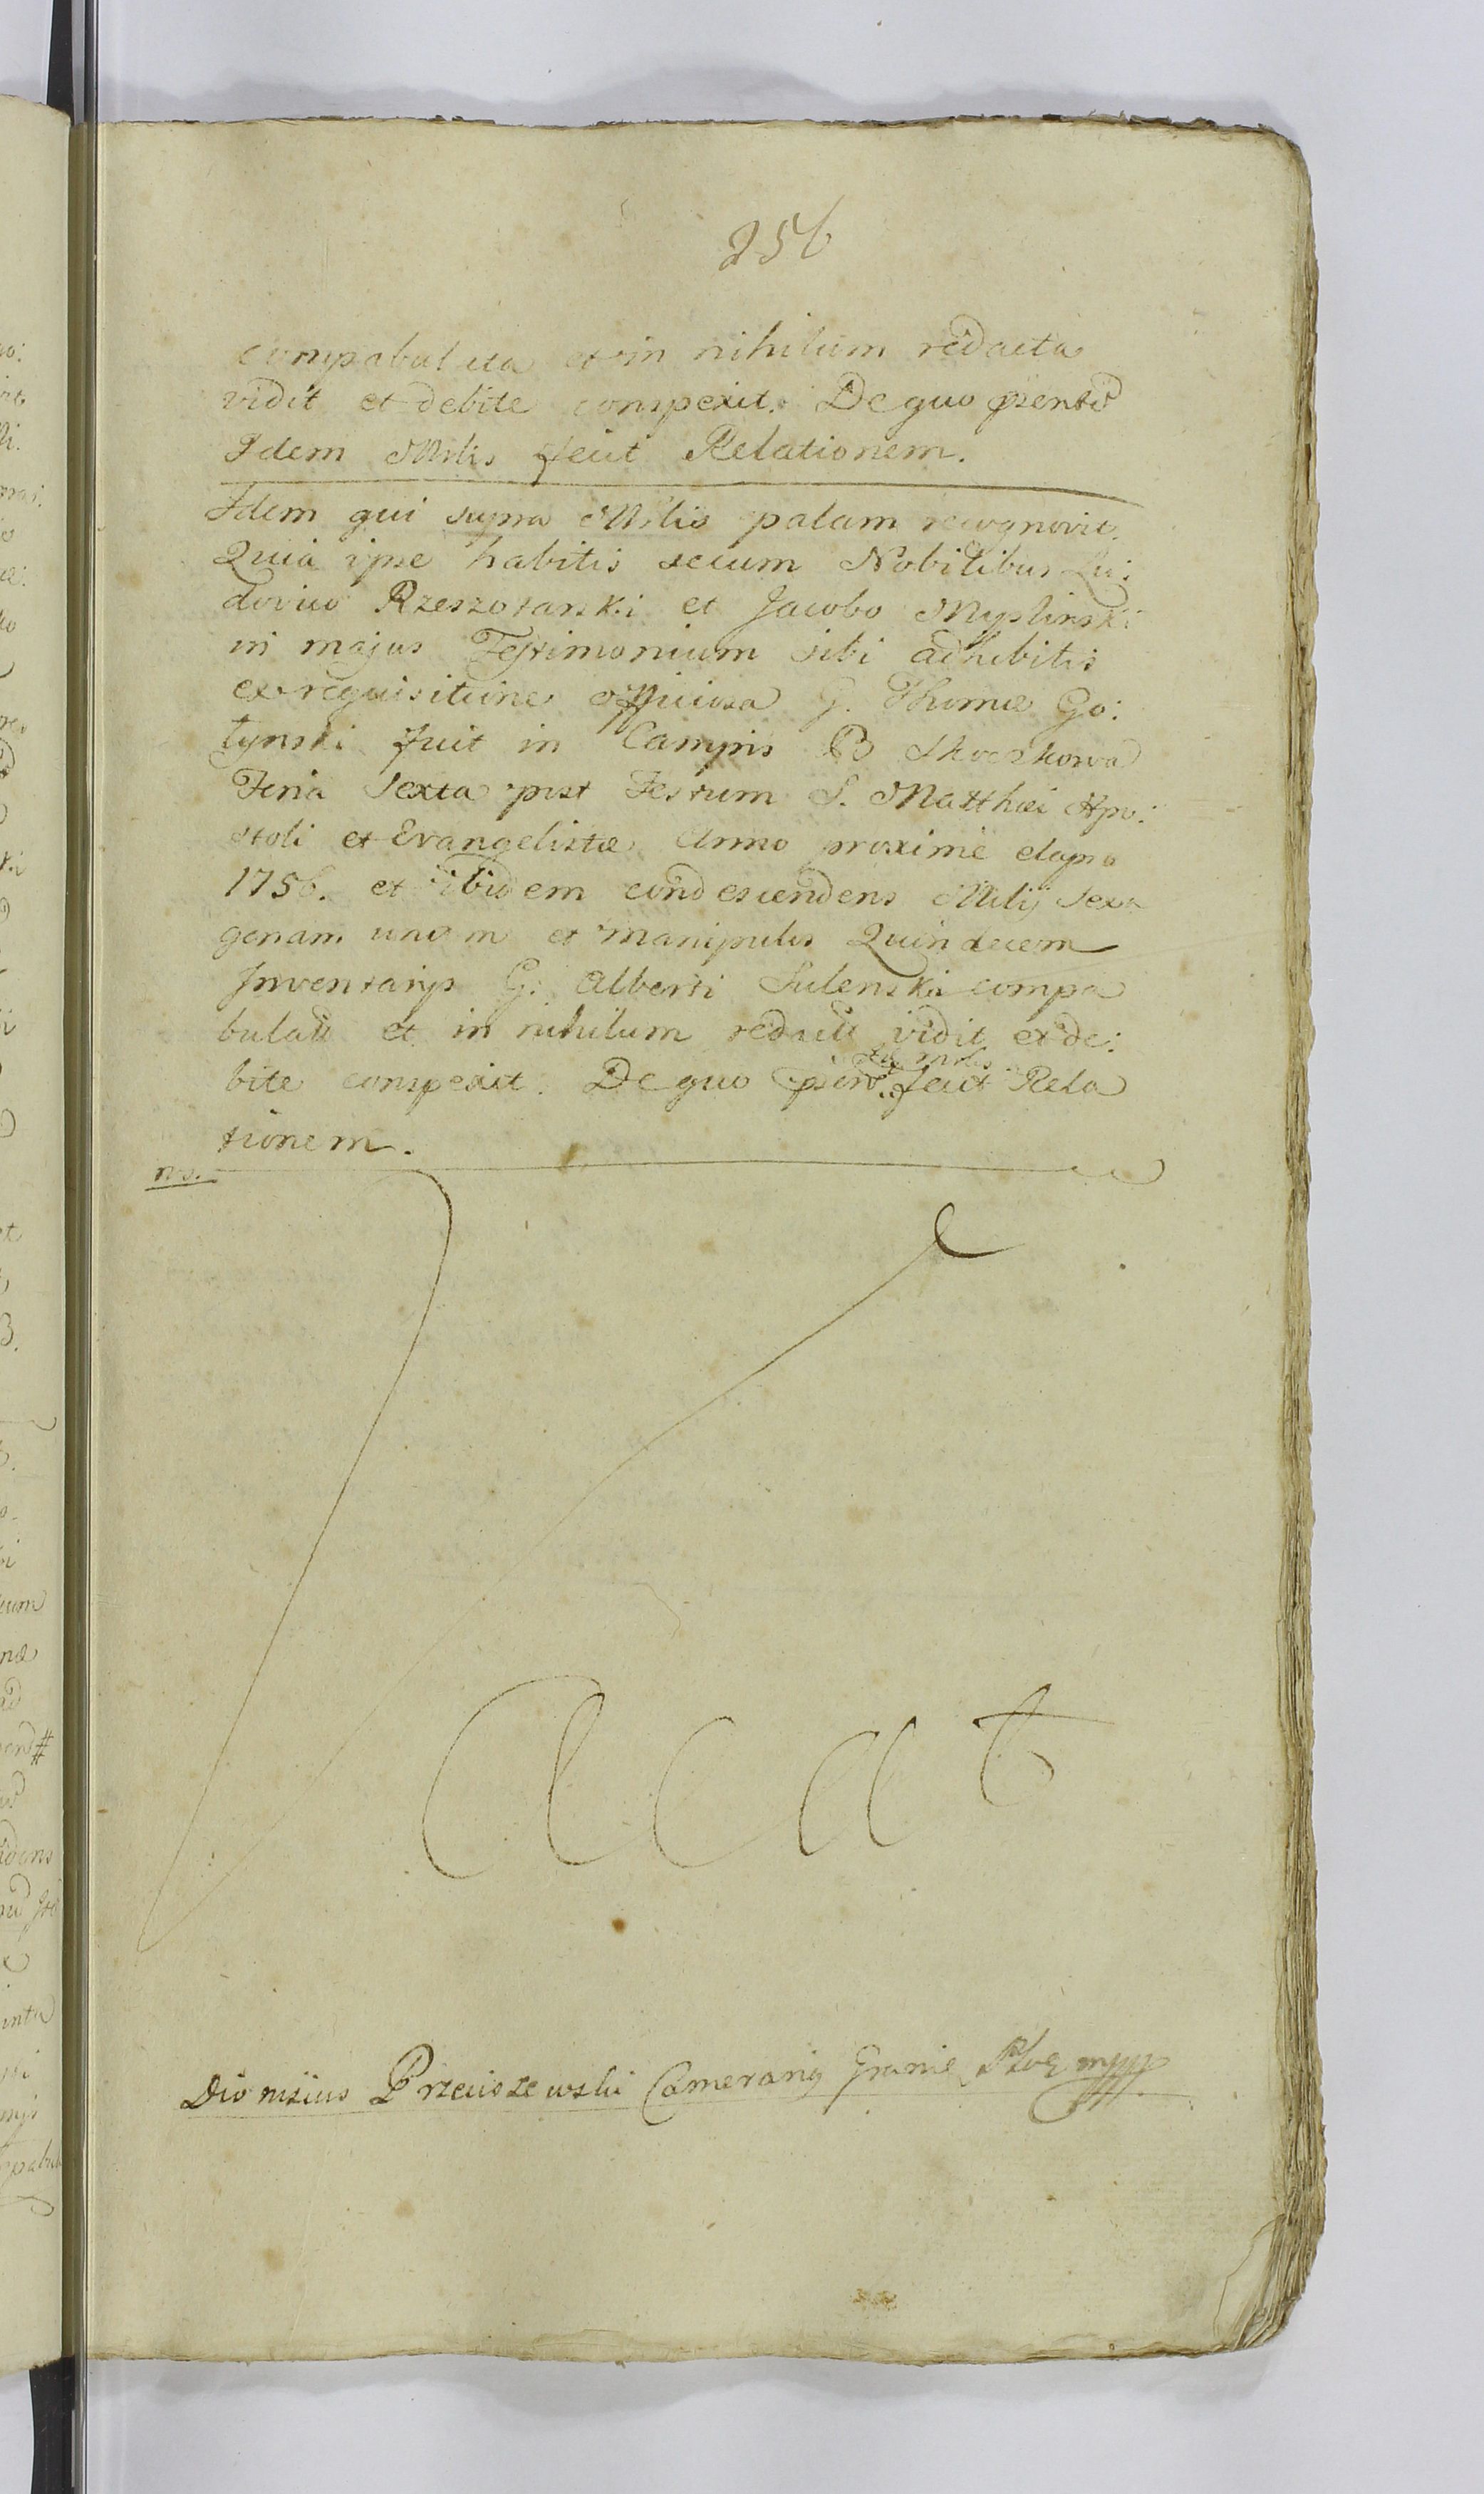 256
compabulata et in nihilum redacta
vidit et debite conspexit. De quo pñnti
Idem Mtlis fecit Relationem.
Idem qui supra Mtlis palam recognovit.
Quia ipse habitis secum Nobilibus Lu:
dovico Rzeszotarski et Jacobo Myslinski
in majus Testimonium sibi adhibitis
ex requisitione officiosa G. Thomæ Go:
tynski fuit in Campis B
Feria Sexta post Festum S. Matthæi Apo:
stoli et Evangelistæ Anno proximè elapso
1756. et ibidem condescendens Milij Sexa
genam unam et manipulos Quindecem
Inventarijs G. Alberti Sulenski compa
bulati et in nihilum redacti vidit et de:
bite conspexit. De quo pñnt. Idem Mtlis fecit Rela
tionem.
ns.
Dionisius Przeciszewski Camerariq Granic Ploc mppp